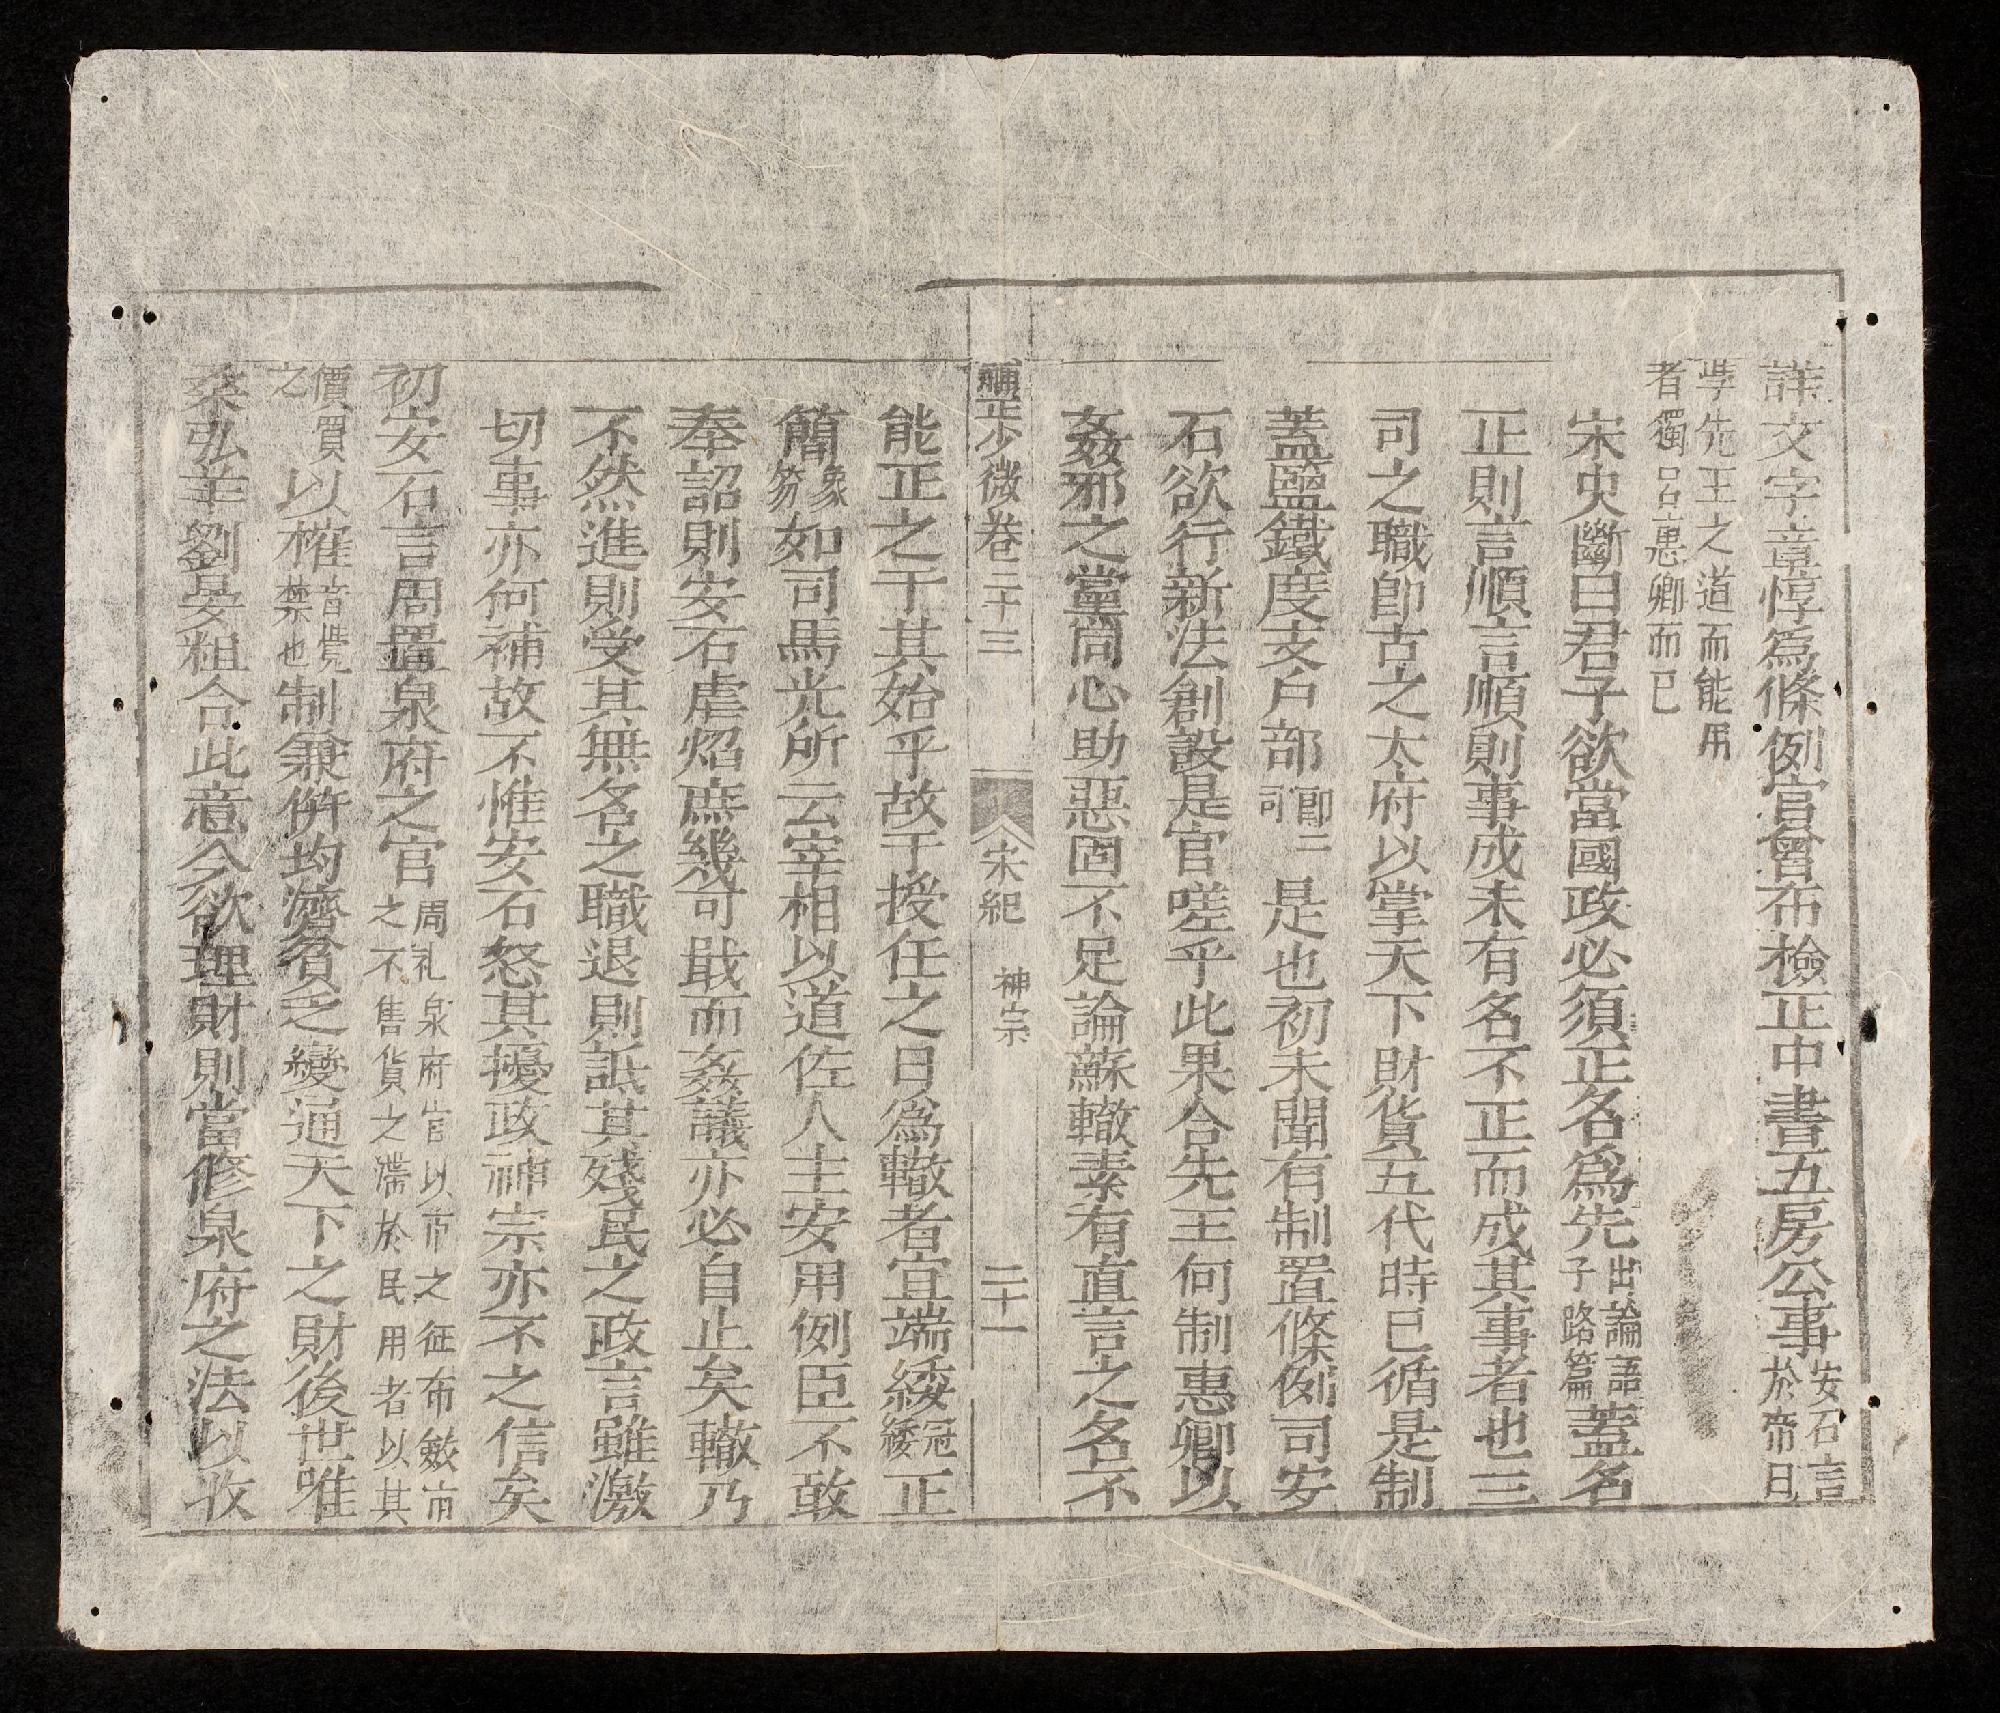 詳文字章惇爲條例官曾布檢正中書五房公事安石言於帝曰
學先王之道而能用者獨呂惠卿而已
宋史斷曰君子欲當國政必須正名爲先出論語子路篇蓋名
正則言順言順則事成未有名不正而成其事者也三
司之職卽古之太府以掌天下財貨五代時已循是制
蓋鹽鐵度支戶部卽三司是也初未聞有制置條例司安
石欲行新法創設是官嗟乎此果合先王何制惠卿以
姦邪之黨同心助惡固不足論蘇轍素有直言之名不
少微卷二十三 宋紀 神宗 二十一
能正之于其始乎故于授任之日爲轍者宜端綏冠緌正
簡象笏如司馬光所云宰相以道佐人主安用例臣不敢
奉詔則安石虐焰庶幾可戢而姦議亦必自止矣轍乃
不然進則受其無名之職退則詆其殘民之政言雖激
切事亦何補故不惟安石怒其擾政神宗亦不之信矣
初安石言周置泉府之官周礼泉府官以市之征布斂市之不售貨之滯於民用者以其
價買之以榷音覺禁也制兼倂均濟貧乏變通天下之財後世唯
桑弘羊劉晏粗合此意今欲理財則當修泉府之法以收